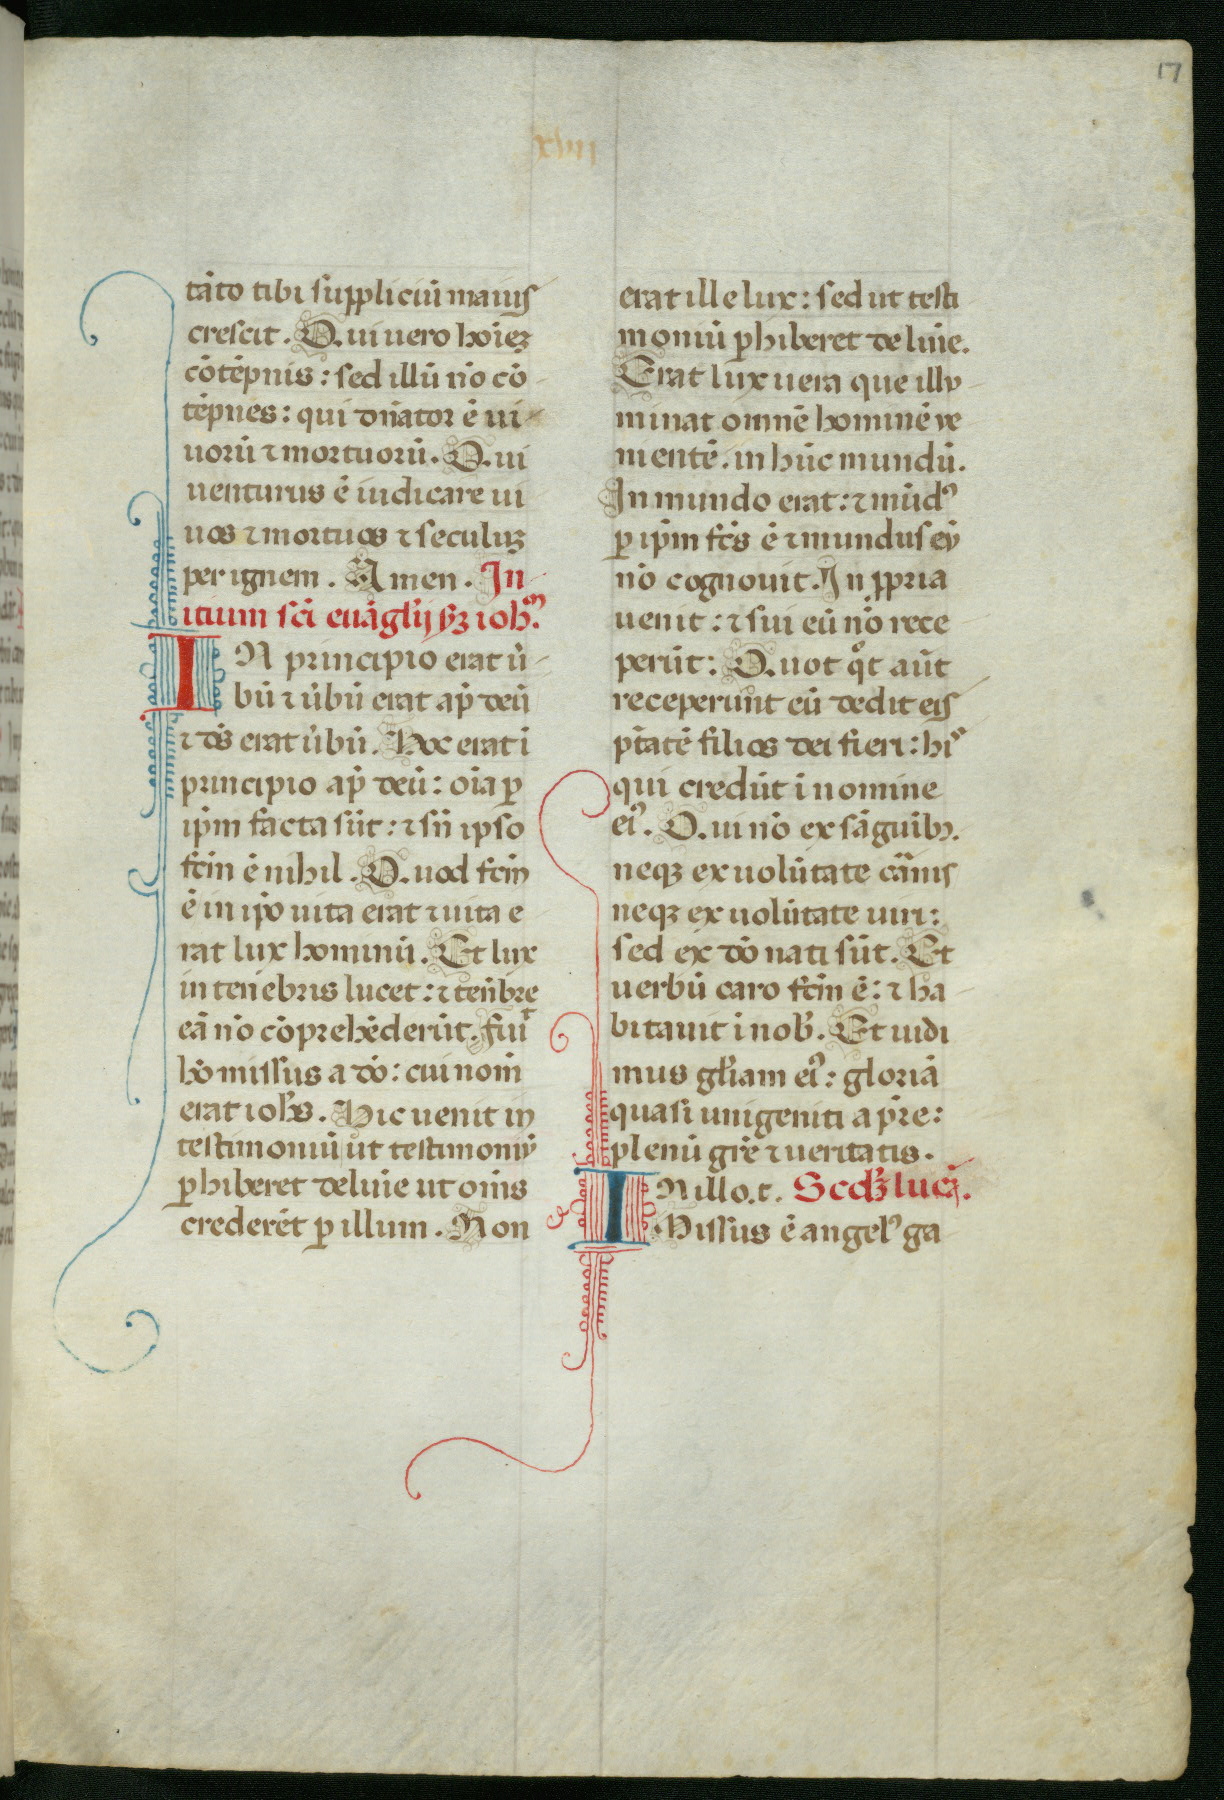 17
xviii
tãto tibi suppliciũ maius
crescit. Qui uero hoĩeʒ
cõtẽpnis: sed illũ nõ cõ
tẽpnes: qui dñator ẽ ui
uorũ ⁊ mortuorũ. Qui
uenturus ẽ iudicare ui
uos ⁊ mortuos ⁊ seculuʒ
per ignem. Amen. In
itium sc̃i euãgl'ij sʒ ioh̃ꝫ.
IN principio erat ũ
bũ ⁊ ũbũ erat ap̃ deũ
⁊ ds̃ erat ũbũ. Hoc erat ĩ
principio ap̃ deũ: oĩa ꝑ
ip̃m facta sũt: ⁊ sñ ipso
fc̃m ẽ nihil. Quod fc̃m
ẽ in ip̃o uita erat ⁊ uita e
rat lux hominũ. Et lux
in tenebris lucet: ⁊ teñbre
eã nõ cõprehẽderũt. Fuĩ
hõ missus a dõ: cui nom̃
erat ioh̃s. Hic uenit in
testimoniũ ut testimoniũ
ꝑhiberet de luĩe ut om̃s
crederẽt ꝑ illum. Non
erat ille lux: sed ut testi
moniũ ꝑhiberet de luĩe.
Erat lux uera que illu
minat omnẽ hominẽ ve
nientẽ. in hũc mundũ.
In mundo erat: ⁊ mũdꝰ
ꝑ ip̃m fc̃s ẽ ⁊ mundus eũ
nõ cognouit. In ꝓpria
uenit: ⁊ sui eũ nõ rece
perũt: Quot qͦt aũt
receperunt eũ dedit eis
pt̃atẽ filios dei fieri: hiˢ
qui credũt ĩ nomine
eiꝰ. Qui nõ ex sãguĩbꝫ.
neqꝫ ex uolũtate carnis
neqꝫ ex uolũtate uiri:
sed ex dõ nati sũt. Et
uerbũ caro fc̃m ẽ: ⁊ ha
bitauit ĩ nob̃. Et uidi
mus gl'iam eiꝰ: gloriã
quasi unigeniti a pr̃e:
plenũ gr̃e ⁊ ueritatis.
IN illo.t. Scd'ʒ lucã.
Missus ẽ angelꝰ ga